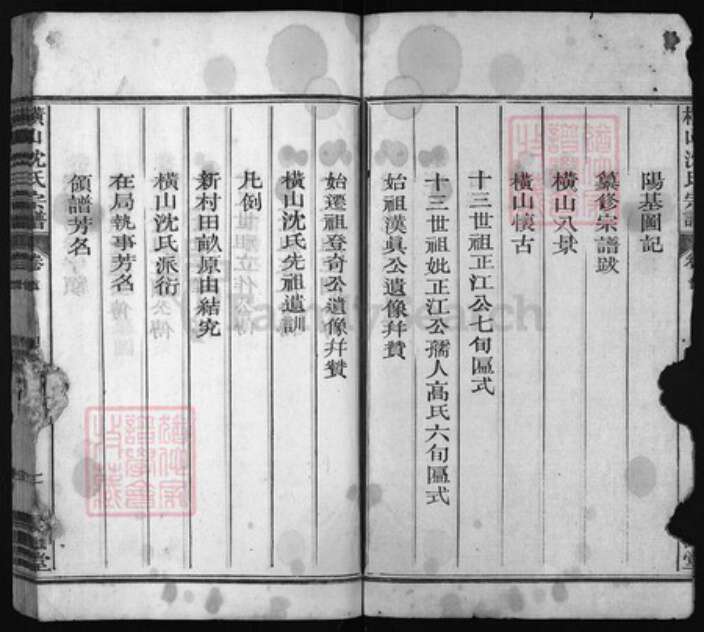 陽基圖記
纂修宗譜跋
橫山八景
橫山懷古
十三世祖正江公七旬匾式
十三世祖妣正江公孺人高氏六旬匾式
始祖漢眞公遺像幷贊
始遷祖登奇公遺像幷贊
橫山沈氏先祖遺訓
凡例
新村田畝原由結究
橫山沈氏派衍
在局執事芳名
領譜芳名
橫山沈氏宗譜
FamilySearch